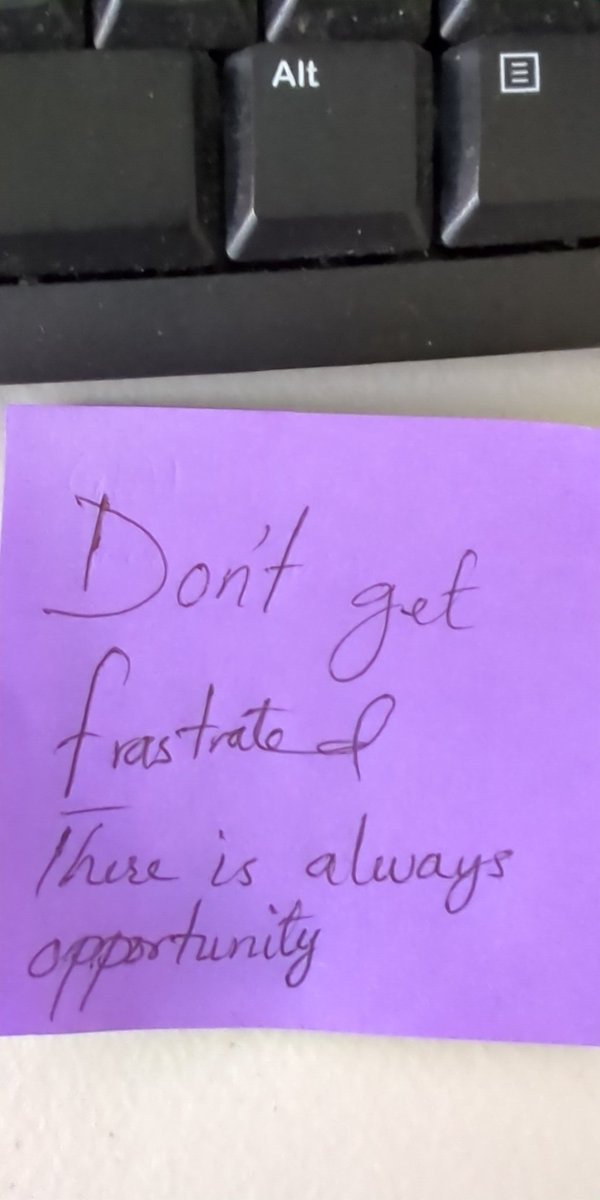 Alt
Don't get
frastrated
There is always
opportunity